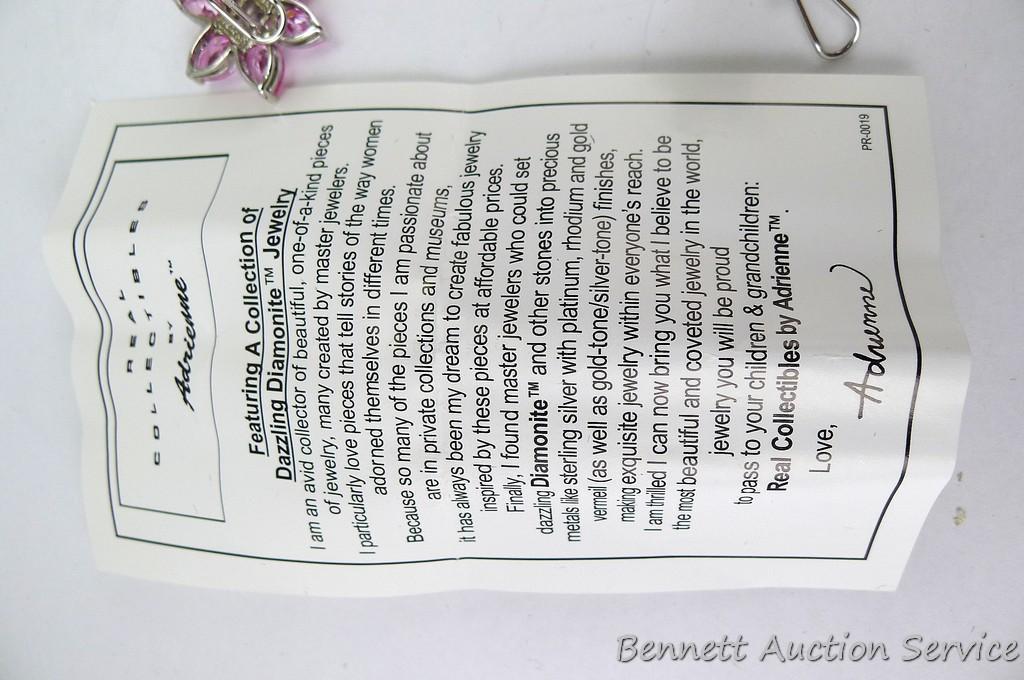 REAL
COLLECTIBLES
BY
Adrienne™
Featuring A Collection of
Dazzling Diamonite™ Jewelry
I am an avid collector of beautiful, one-of-a-kind pieces
of jewelry, many created by master jewelers.
I particularly love pieces that tell stories of the way women
adorned themselves in different times.
Because so many of the pieces I am passionate about
are in private collections and museums,
it has always been my dream to create fabulous jewelry
inspired by these pieces at affordable prices.
Finally, I found master jewelers who could set
dazzling Diamonite™ and other stones into precious
metals like sterling silver with platinum, rhodium and gold
vermeil (as well as gold-tone/silver-tone) finishes,
making exquisite jewelry within everyone's reach.
I am thrilled I can now bring you what I believe to be
the most beautiful and coveted jewelry in the world,
jewelry you will be proud
to pass to your children & grandchildren:
Real Collectibles by Adrienne™.
Love,
Adrienne
PR-0019
Bennett Auction Service